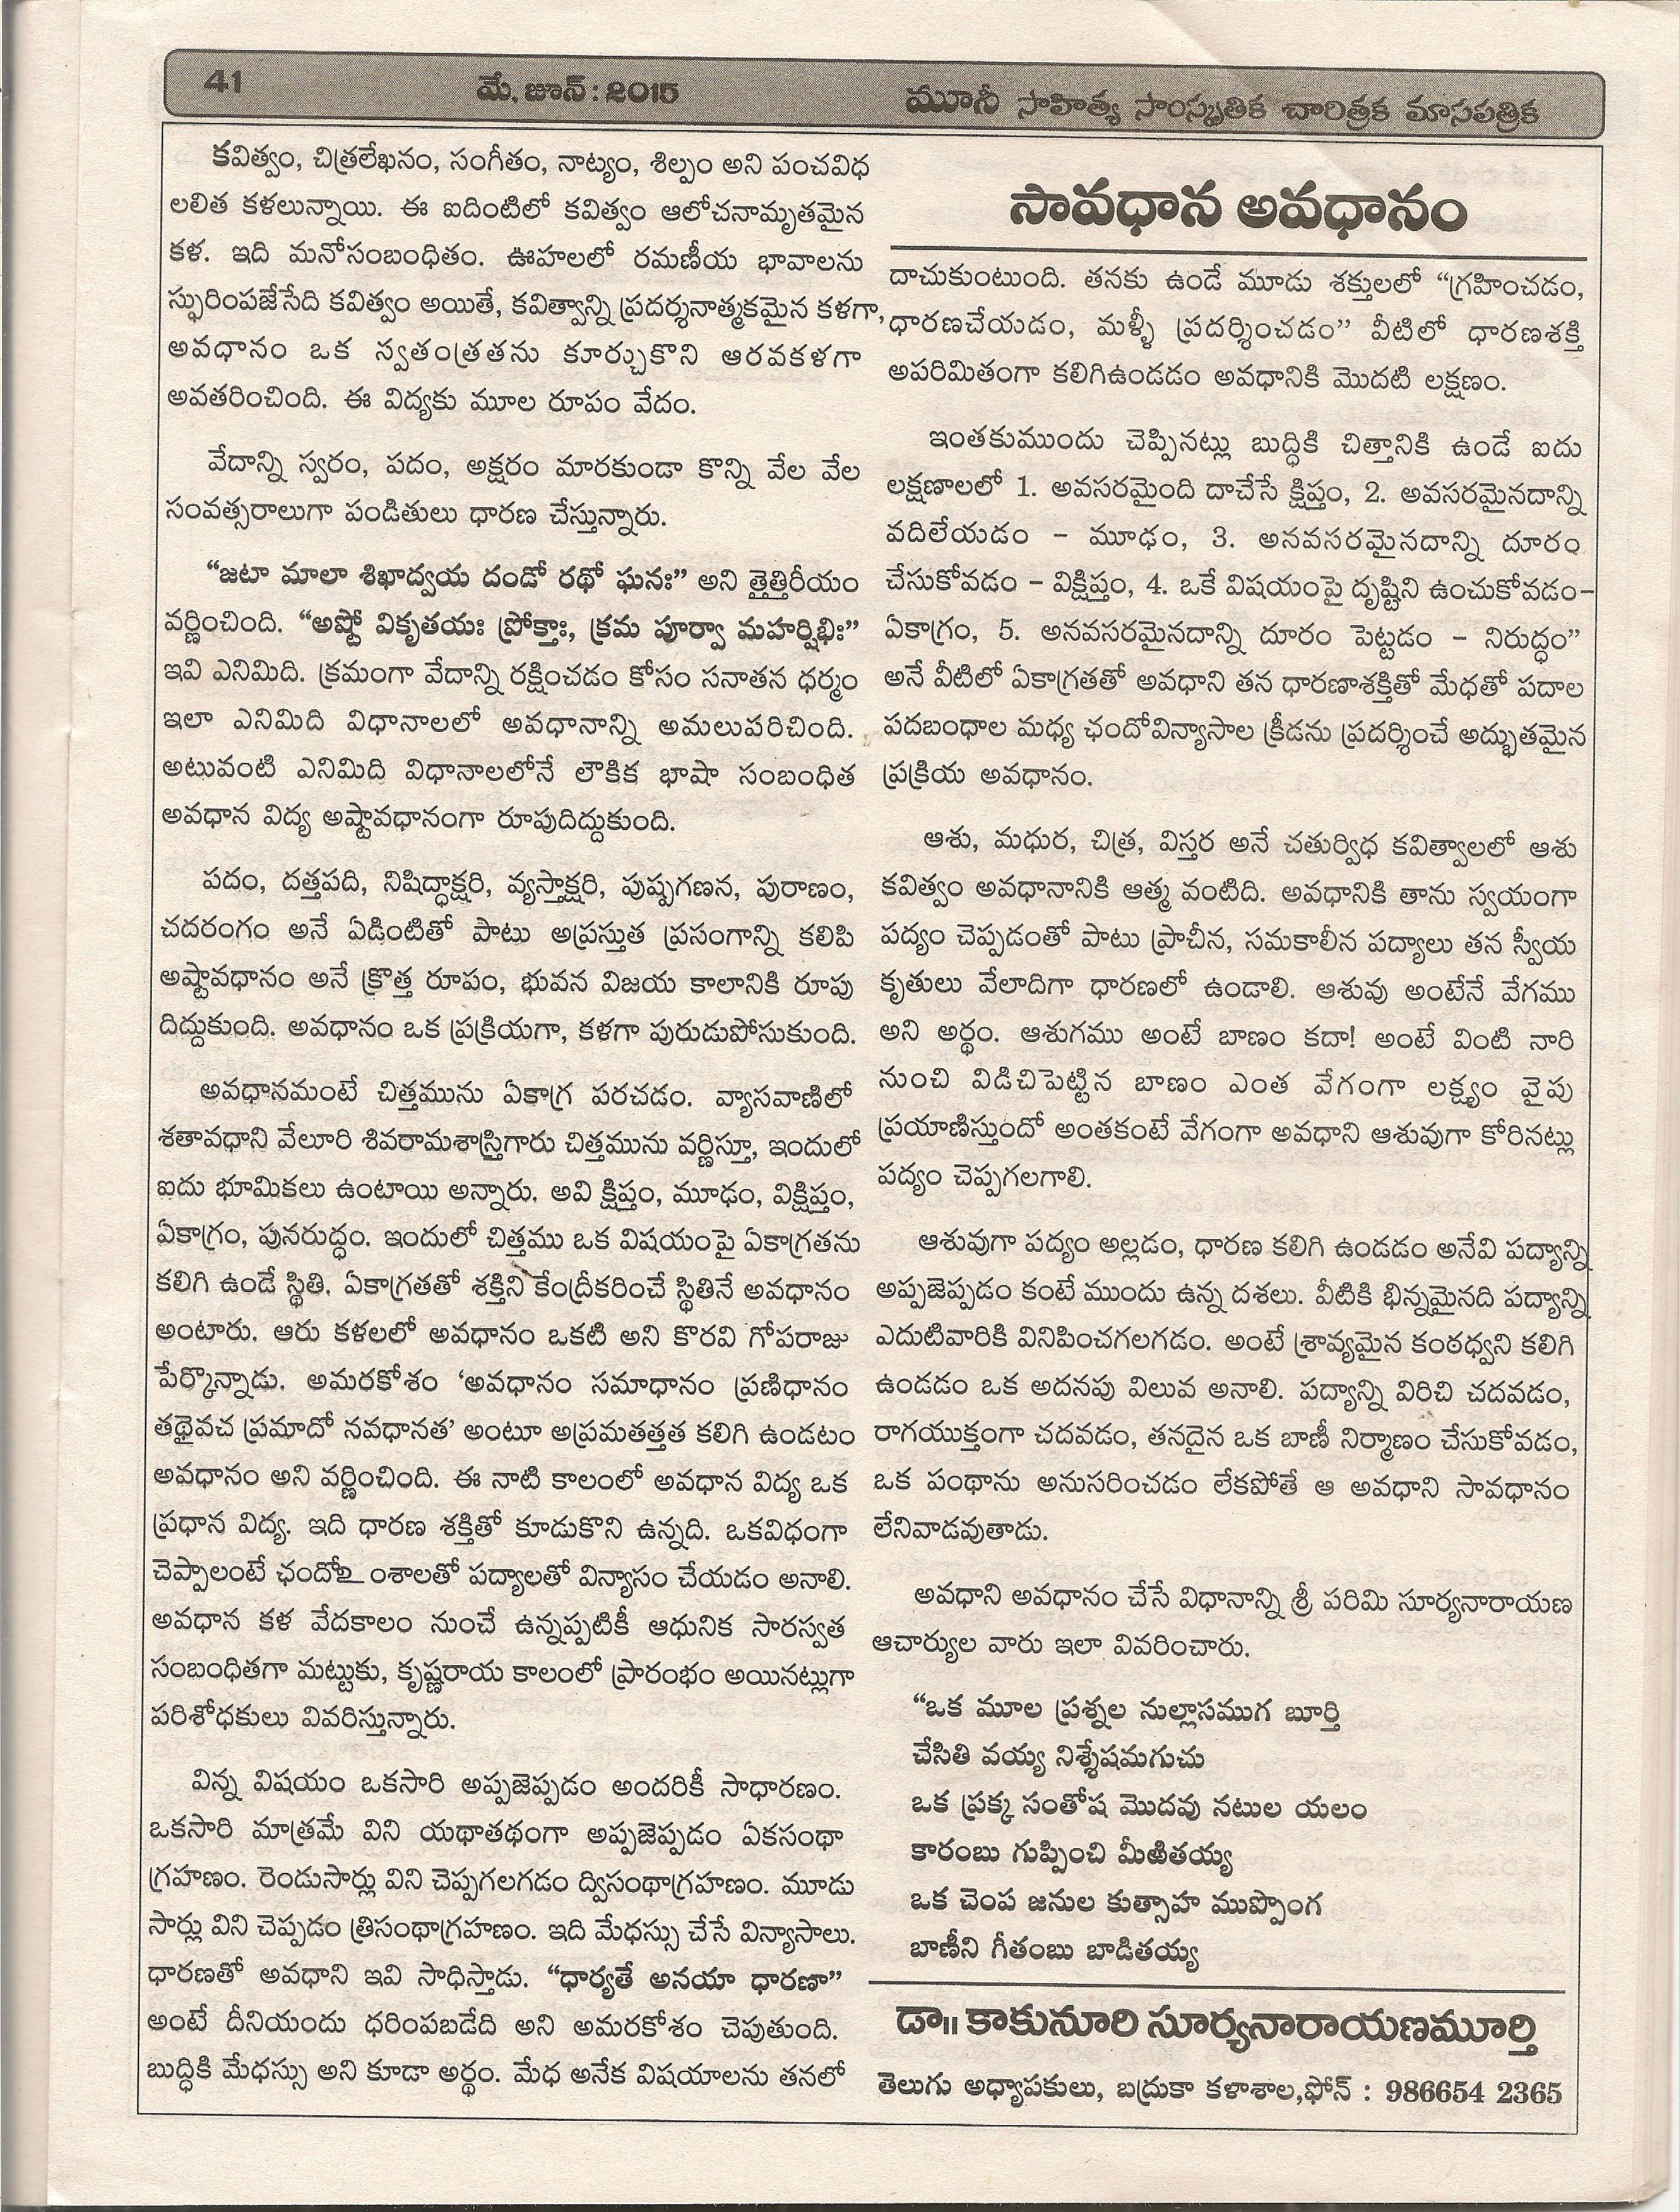 41 మే, జూన్ : 2015 మూసీ సాహిత్య సాంస్కృతిక చారిత్రక మాసపత్రిక
కవిత్వం, చిత్రలేఖనం, సంగీతం, నాట్యం, శిల్పం అని పంచవిధ
లలిత కళలున్నాయి. ఈ ఐదింటిలో కవిత్వం ఆలోచనామృతమైన
కళ. ఇది మనోసంబంధితం. ఊహలలో రమణీయ భావాలను
స్ఫురింపజేసేది కవిత్వం అయితే, కవిత్వాన్ని ప్రదర్శనాత్మకమైన కళగా,
అవధానం ఒక స్వతంత్రతను కూర్చుకొని ఆరవకళగా
అవతరించింది. ఈ విద్యకు మూల రూపం వేదం.
వేదాన్ని స్వరం, పదం, అక్షరం మారకుండా కొన్ని వేల వేల
సంవత్సరాలుగా పండితులు ధారణ చేస్తున్నారు.
“జటా మాలా శిఖాద్వయ దండో రథో ఘనః” అని తైత్తిరీయం
వర్ణించింది. “అష్టో వికృతయః ప్రోక్తాః, క్రమ పూర్వా మహర్షిభిః”
ఇవి ఎనిమిది. క్రమంగా వేదాన్ని రక్షించడం కోసం సనాతన ధర్మం
ఇలా ఎనిమిది విధానాలలో అవధానాన్ని అమలుపరిచింది.
అటువంటి ఎనిమిది విధానాలలోనే లౌకిక భాషా సంబంధిత
అవధాన విద్య అష్టావధానంగా రూపుదిద్దుకుంది.
పదం, దత్తపది, నిషిద్ధాక్షరి, వ్యస్తాక్షరి, పుష్పగణన, పురాణం,
చదరంగం అనే ఏడింటితో పాటు అప్రస్తుత ప్రసంగాన్ని కలిపి
అష్టావధానం అనే క్రొత్త రూపం, భువన విజయ కాలానికి రూపు
దిద్దుకుంది. అవధానం ఒక ప్రక్రియగా, కళగా పురుడుపోసుకుంది.
అవధానమంటే చిత్తమును ఏకాగ్ర పరచడం. వ్యాసవాణిలో
శతావధాని వేలూరి శివరామశాస్త్రిగారు చిత్తమును వర్ణిస్తూ, ఇందులో
ఐదు భూమికలు ఉంటాయి అన్నారు. అవి క్షిప్తం, మూఢం, విక్షిప్తం,
ఏకాగ్రం, పునరుద్ధం. ఇందులో చిత్తము ఒక విషయంపై ఏకాగ్రతను
కలిగి ఉండే స్థితి. ఏకాగ్రతతో శక్తిని కేంద్రీకరించే స్థితినే అవధానం
అంటారు. ఆరు కళలలో అవధానం ఒకటి అని కొరవి గోపరాజు
పేర్కొన్నాడు. అమరకోశం ‘అవధానం సమాధానం ప్రణిధానం
తథైవచ ప్రమాదో నవధానత’ అంటూ అప్రమతత్తత కలిగి ఉండటం
అవధానం అని వర్ణించింది. ఈ నాటి కాలంలో అవధాన విద్య ఒక
ప్రధాన విద్య. ఇది ధారణ శక్తితో కూడుకొని ఉన్నది. ఒకవిధంగా
చెప్పాలంటే ఛందో౽ంశాలతో పద్యాలతో విన్యాసం చేయడం అనాలి.
అవధాన కళ వేదకాలం నుంచే ఉన్నప్పటికీ ఆధునిక సారస్వత
సంబంధితగా మట్టుకు, కృష్ణరాయ కాలంలో ప్రారంభం అయినట్లుగా
పరిశోధకులు వివరిస్తున్నారు.
విన్న విషయం ఒకసారి అప్పజెప్పడం అందరికీ సాధారణం.
ఒకసారి మాత్రమే విని యథాతథంగా అప్పజెప్పడం ఏకసంథా
గ్రహణం. రెండుసార్లు విని చెప్పగలగడం ద్విసంథాగ్రహణం. మూడు
సార్లు విని చెప్పడం త్రిసంథాగ్రహణం. ఇది మేధస్సు చేసే విన్యాసాలు.
ధారణతో అవధాని ఇవి సాధిస్తాడు. “ధార్యతే అనయా ధారణా”
అంటే దీనియందు ధరింపబడేది అని అమరకోశం చెపుతుంది.
బుద్ధికి మేధస్సు అని కూడా అర్థం. మేధ అనేక విషయాలను తనలో
సావధాన అవధానం
దాచుకుంటుంది. తనకు ఉండే మూడు శక్తులలో “గ్రహించడం,
ధారణచేయడం, మళ్ళీ ప్రదర్శించడం” వీటిలో ధారణశక్తి
అపరిమితంగా కలిగిఉండడం అవధానికి మొదటి లక్షణం.
ఇంతకుముందు చెప్పినట్లు బుద్ధికి చిత్తానికి ఉండే ఐదు
లక్షణాలలో 1. అవసరమైంది దాచేసే క్షిప్తం, 2. అవసరమైనదాన్ని
వదిలేయడం – మూఢం, 3. అనవసరమైనదాన్ని దూరం
చేసుకోవడం – విక్షిప్తం, 4. ఒకే విషయంపై దృష్టిని ఉంచుకోవడం–
ఏకాగ్రం, 5. అనవసరమైనదాన్ని దూరం పెట్టడం – నిరుద్ధం”
అనే వీటిలో ఏకాగ్రతతో అవధాని తన ధారణాశక్తితో మేధతో పదాల
పదబంధాల మధ్య ఛందోవిన్యాసాల క్రీడను ప్రదర్శించే అద్భుతమైన
ప్రక్రియ అవధానం.
ఆశు, మధుర, చిత్ర, విస్తర అనే చతుర్విధ కవిత్వాలలో ఆశు
కవిత్వం అవధానానికి ఆత్మ వంటిది. అవధానికి తాను స్వయంగా
పద్యం చెప్పడంతో పాటు ప్రాచీన, సమకాలీన పద్యాలు తన స్వీయ
కృతులు వేలాదిగా ధారణలో ఉండాలి. ఆశువు అంటేనే వేగము
అని అర్థం. ఆశుగము అంటే బాణం కదా! అంటే వింటి నారి
నుంచి విడిచిపెట్టిన బాణం ఎంత వేగంగా లక్ష్యం వైపు
ప్రయాణిస్తుందో అంతకంటే వేగంగా అవధాని ఆశువుగా కోరినట్లు
పద్యం చెప్పగలగాలి.
ఆశువుగా పద్యం అల్లడం, ధారణ కలిగి ఉండడం అనేవి పద్యాన్ని
అప్పజెప్పడం కంటే ముందు ఉన్న దశలు. వీటికి భిన్నమైనది పద్యాన్ని
ఎదుటివారికి వినిపించగలగడం. అంటే శ్రావ్యమైన కంఠధ్వని కలిగి
ఉండడం ఒక అదనపు విలువ అనాలి. పద్యాన్ని విరిచి చదవడం,
రాగయుక్తంగా చదవడం, తనదైన ఒక బాణీ నిర్మాణం చేసుకోవడం,
ఒక పంథాను అనుసరించడం లేకపోతే ఆ అవధాని సావధానం
లేనివాడవుతాడు.
అవధాని అవధానం చేసే విధానాన్ని శ్రీ పరిమి సూర్యనారాయణ
ఆచార్యుల వారు ఇలా వివరించారు.
“ఒక మూల ప్రశ్నల నుల్లాసముగ బూర్తి
చేసితి వయ్య నిశ్శేషమగుచు
ఒక ప్రక్క సంతోష మొదవు నటుల యలం
కారంబు గుప్పించి మీఱితయ్య
ఒక చెంప జనుల కుత్సాహ ముప్పొంగ
బాణీని గీతంబు బాడితయ్య
డా॥ కాకునూరి సూర్యనారాయణమూర్తి
తెలుగు అధ్యాపకులు, బద్రుకా కళాశాల,ఫోన్ : 986654 2365